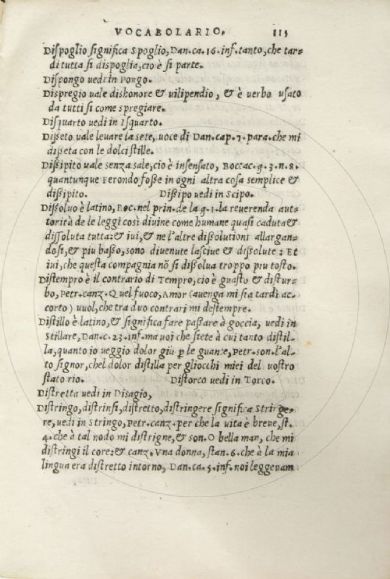 VOCABOLARIO. 115
Dispoglio significa Spoglio, Dan. ca. 16. inf. tanto, che tar=
di tutta si dispoglia, cio è si parte.
Dispongo vedi in Pongo.
Dispregio vale dishonore & vilipendio, & è verbo usato
da tutti si come spregiare.
Disquarto vedi in Isquarto.
Disseto vale levare la sete, voce di Dan. cap. 7. para. che mi
disseta con le dolci stille.
Dissipito vale senza sale, cio è insensato, Boccac. g. 3. n. 8.
quantunque Ferondo fosse in ogni altra cosa semplice &
dissipito. Dissipo vedi in Scipo.
Dissoluo è latino, Boc. nel prin. de la g. 1. la reverenda auto
rità de le leggi così divine come humane quasi caduta &
dissoluta tutta: & ivi, & ne l'altre dissolutioni allargan=
dosi, & più basso, sono divenute lascive & dissolute: Et
ivi, che questa compagnia nō si dissolva troppo piu tosto.
Distempro è il contrario di Tempro, cio è guasto & distur=
bo, Petr. canz. Quel fuoco, Amor (avenga mi sia tardi ac=
corto) vuol, che tra duo contrari mi distempre.
Distillo è latino, & significa fare passare à goccia, vedi in
Stillare, Dan. c. 23. inf. ma voi chi siete à cui tanto distil=
la, quanto io veggio dolor giu p le guanze, Petr. son. L'al=
to signor, chel dolor distilla per gliocchi miei del vostro
stato rio. Distorco vedi in Torco.
Distretta vedi in Disagio,
Distringo, distrinsi, distretto, distringere significa Stringe=
re, vedi in Stringo, Petr. canz. per che la vita è breve, st.
4. che à tal nodo mi distrigne, & son. O bella man, che mi
distringi il core: & canz. Una donna, stan. 6. che à la mia
lingua era distretto intorno, Dan. ca. 5. inf. noi leggevam